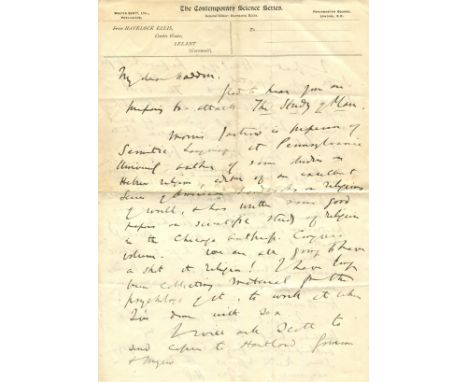 The Contemporary Science Series.
WALTER SCOTT, LTD.,
PUBLISHER.
Edited by HAVELOCK ELLIS.
PATERNOSTER SQUARE,
LONDON, E.C.
From HAVELOCK ELLIS,
To
LELANT
(Cornwall)
My dear Haddon,
Glad to hear you are
preparing to attack The Study of Man.
Morris Jastrow is Professor of
Semitic Languages at Pennsylvania
University, author of some studies in
Hebrew religion, editor of an excellent
series of American handbooks on religions
of world, & has written some good
papers on scientific study of religion
in the Chicago Anthrop. Congress
volume. We are all going to have
a shot at religion! I have long
been collecting material for the
psychology of it, to work it when
I've done with sex
I will ask Scott to
send copies to Hartland,
& Myers